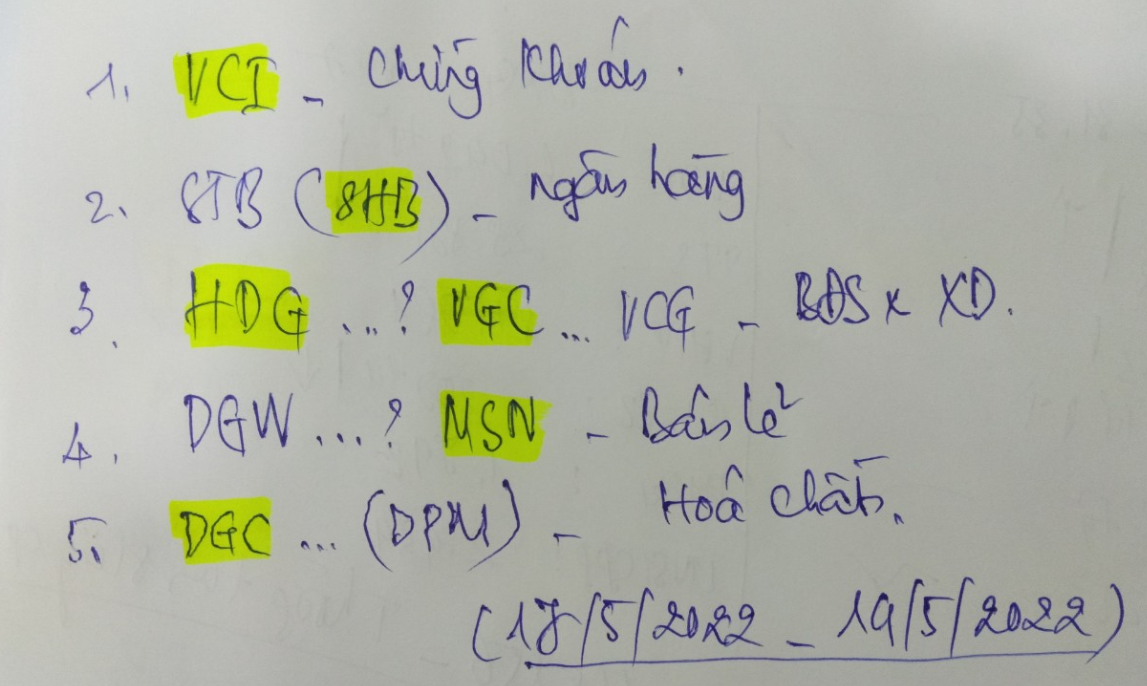 1. VCI - Chứng khoán.
2. STB (SHB) - ngân hàng
3. HDG ...? VGC ... VCG - BĐS x XD.
4. DGW ...? MSN - Bán lẻ
5. DGC ... (DPM) - Hoá chất.
(17/5/2022 - 19/5/2022)